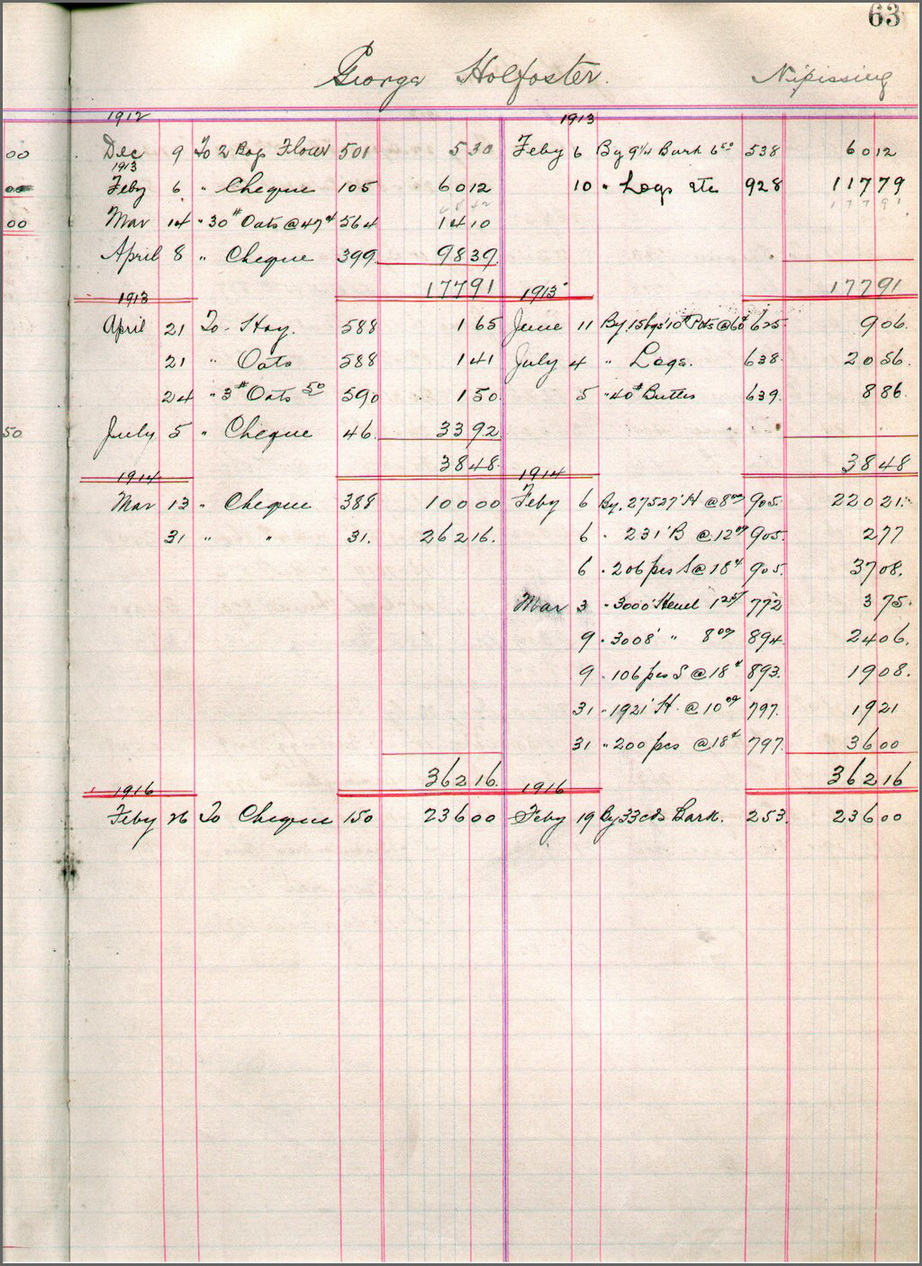 63
George Holfoster. Nipissing
1912 1913
00 Dec 9 To 2 Bags Flour 501 5 30 Feby 6 By 9¼ Bark 6 50 538 60 12
1913
00 Feby 6 " Cheque 105 60 12 10 " Logs etc 928 117 79
177 91
00 Mar 14 " 30# Oats @ 47¢ 564 14 10
April 8 " Cheque 399 98 39
177 91 177 91
1913 1913
April 21 To Hay. 588 1 65 June 11 By 15 bgs 10# Pots @ 60¢ 625 9 06.
21 " Oats 588 1 41 July 4 " Logs. 638. 20 56.
24 " 3# Oats 50 590 1 50 5 " 40# Butter 639. 8 86.
50 July 5 " Cheque 46. 33 92
38 48 38 48
1914 1914
Mar 13 " Cheque 388 100 00 Feby 6 By 27527' H @ 8 00 905. 220 21
31 " " 31. 262 16. 6 " 231' B @ 12 00 905. 2 77
6 " 206 pcs S @ 18¢ 905. 37 08.
Mar 3 " 3000' 1 25 772 3 75.
9 " 3008' " 8 00 894. 24 06.
9 " 106 pcs S @ 18¢ 893. 19 08.
31 " 1921' H. @ 10 00 797. 19 21
31 " 200 pcs @ 18¢ 797. 36 00
362 16. 362 16
1916 1916
Feby 26 To Cheque 150 236 00 Feby 19 By 33 cds Bark. 253. 236 00